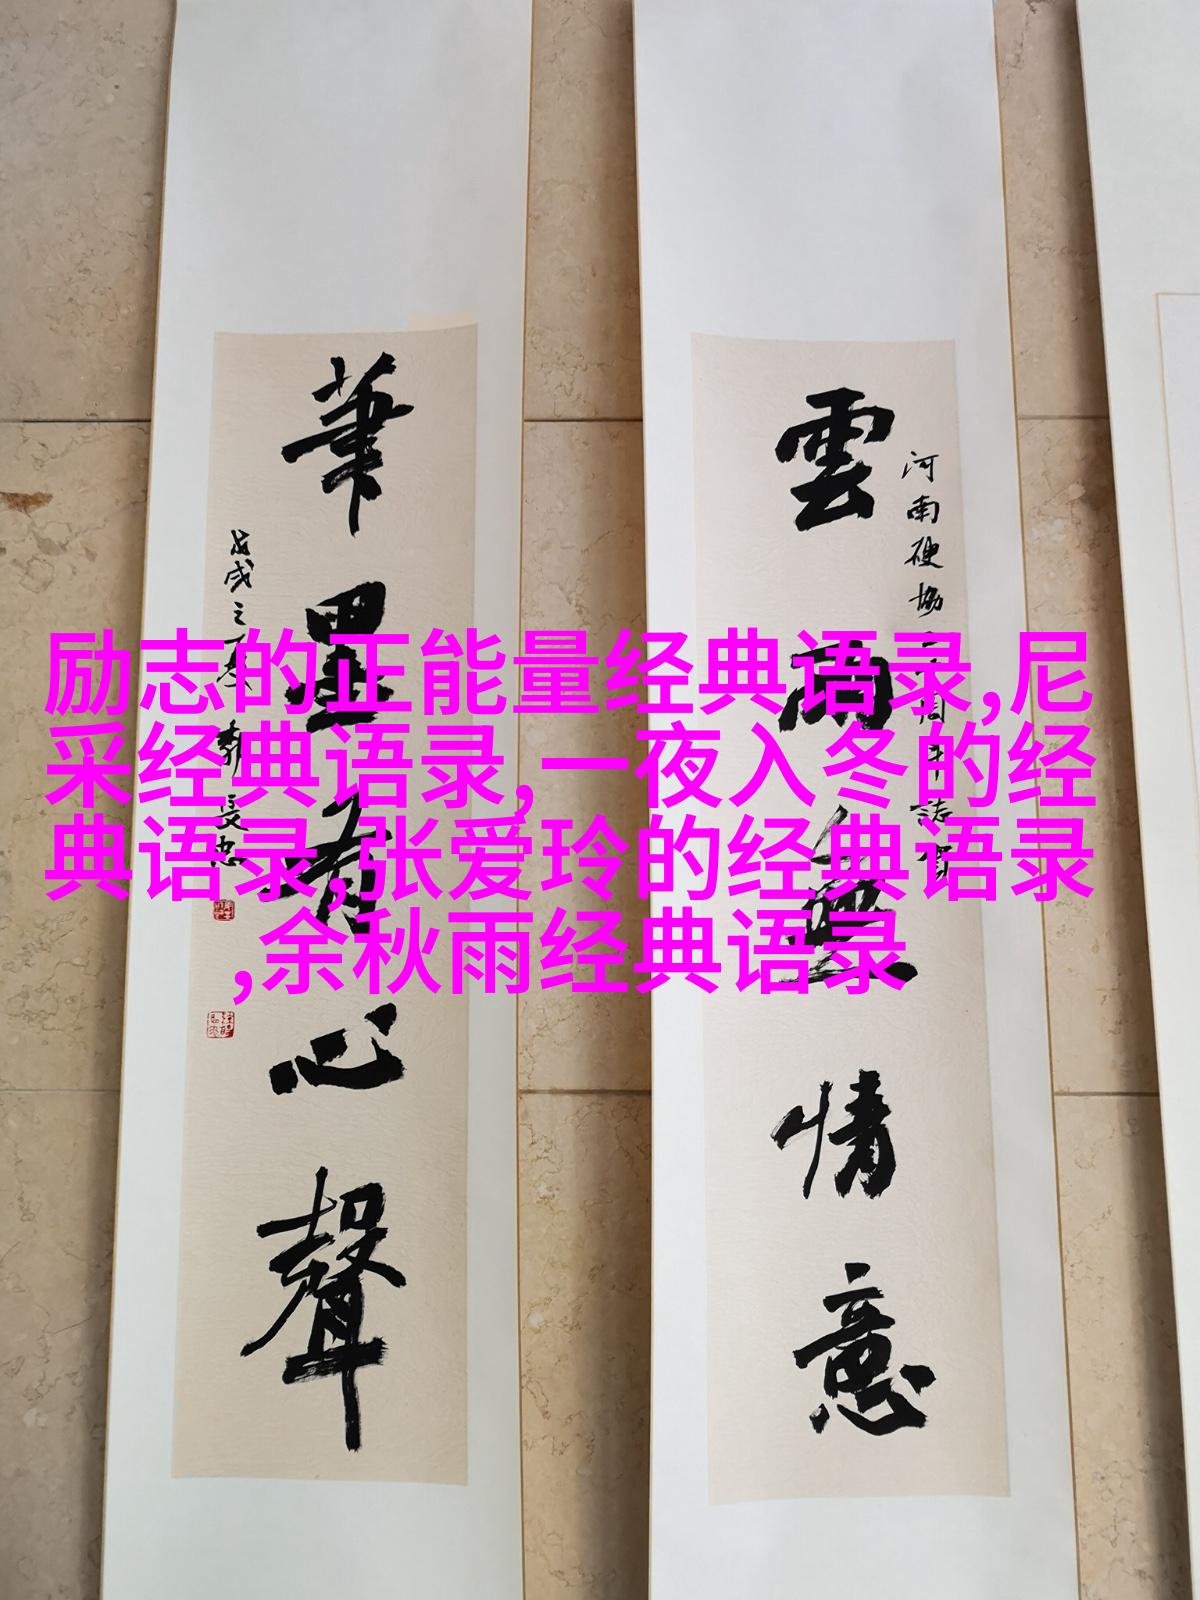 河南硬協
雲雨無情意
筆墨有心聲
戊戌之
励志的正能量经典语录,尼
采经典语录, 一夜入冬的经
典语录,张爱玲的经典语录
,余秋雨经典语录